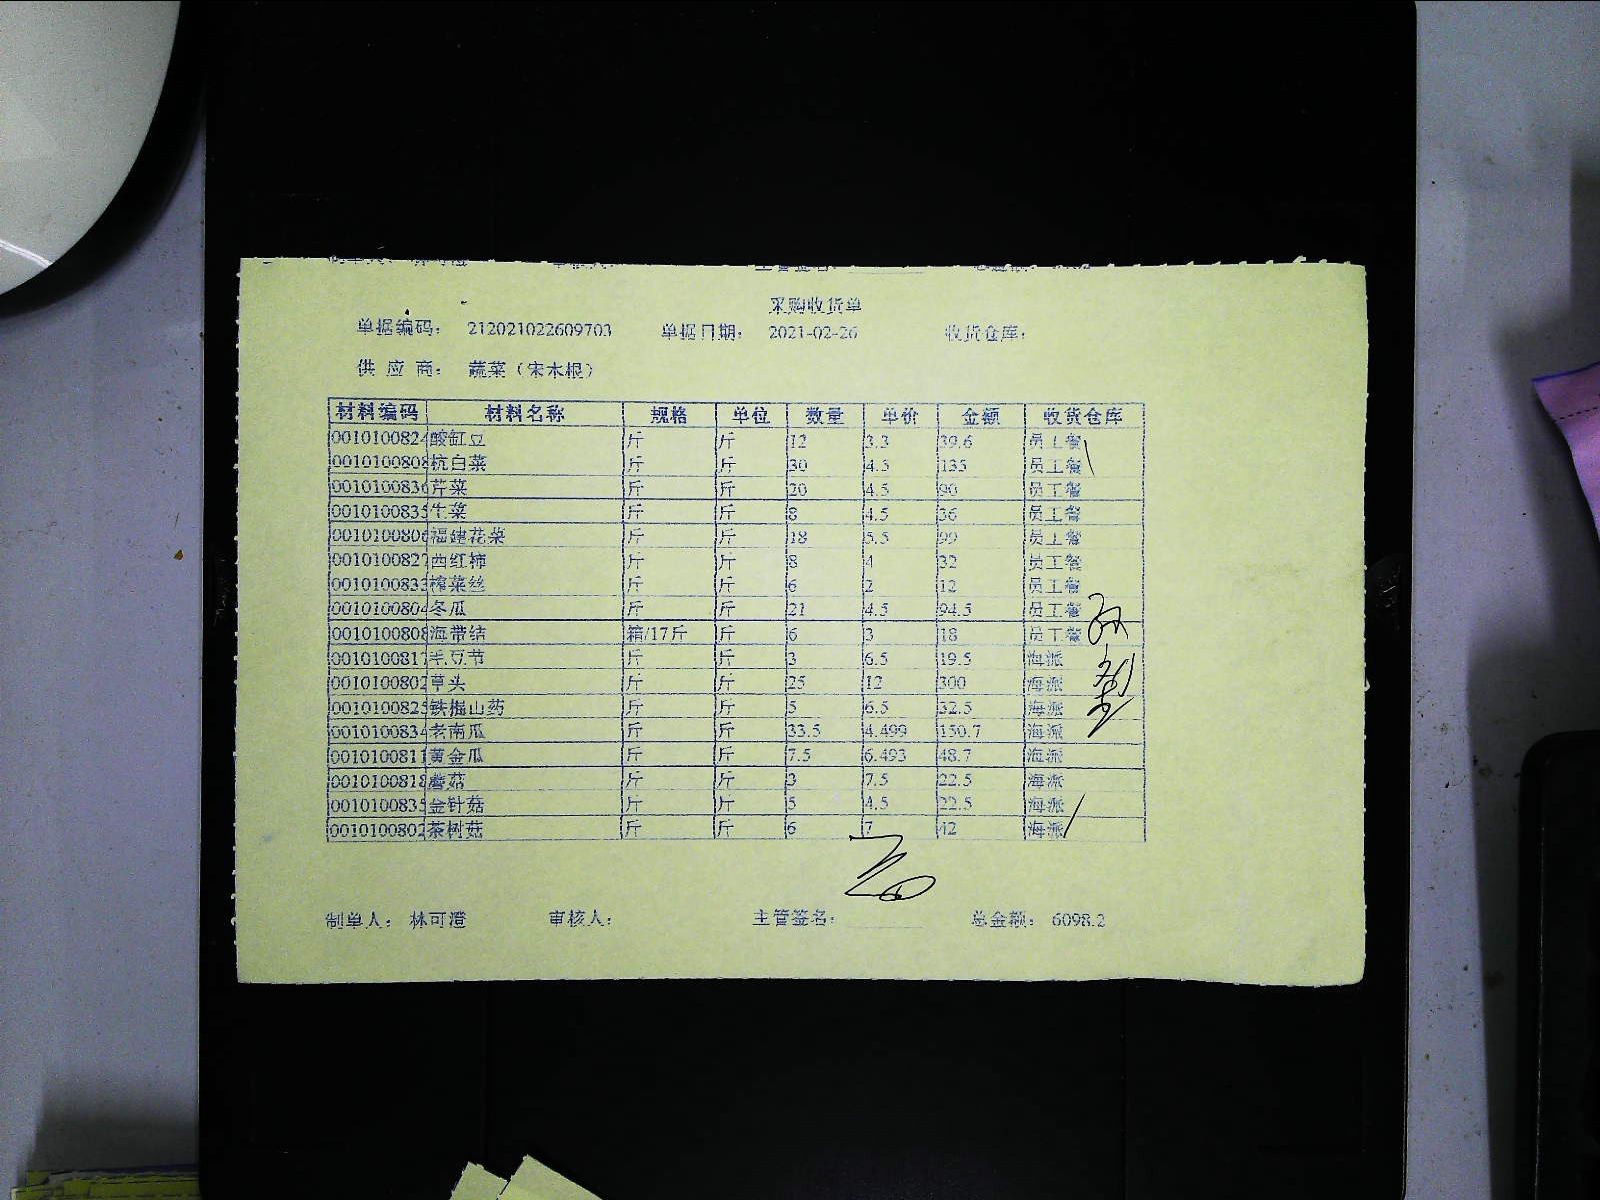 采购收货单
单据编码： 212021022609703 单据日期： 2021-02-26 收货仓库：
供 应 商： 蔬菜（宋木根）
材料编码 材料名称 规格 单位 数量 单价 金额 收货仓库
0010100824 酸缸豆 斤 斤 12 3.3 39.6 员工餐
0010100808 杭白菜 斤 斤 30 4.5 135 员工餐
0010100836 芹菜 斤 斤 20 4.5 90 员工餐
0010100835 生菜 斤 斤 8 4.5 36 员工餐
0010100806 福建花菜 斤 斤 18 5.5 99 员工餐
0010100827 西红柿 斤 斤 8 4 32 员工餐
0010100833 榨菜丝 斤 斤 6 2 12 员工餐
0010100804 冬瓜 斤 斤 21 4.5 94.5 员工餐
0010100808 海带结 箱/17斤 斤 6 3 18 员工餐
0010100817 毛豆节 斤 斤 3 6.5 19.5 海派
0010100802 草头 斤 斤 25 12 300 海派
0010100825 铁棍山药 斤 斤 5 6.5 32.5 海派
0010100834 老南瓜 斤 斤 33.5 4.499 150.7 海派
0010100811 黄金瓜 斤 斤 7.5 6.493 48.7 海派
0010100818 蘑菇 斤 斤 3 7.5 22.5 海派
0010100835 金针菇 斤 斤 5 4.5 22.5 海派
0010100802 茶树菇 斤 斤 6 7 42 海派
制单人： 林可澄 审核人： 主管签名： 总金额： 6098.2